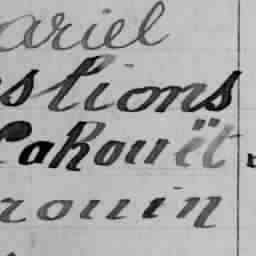 ariel
s lions
Cahouët
rouin